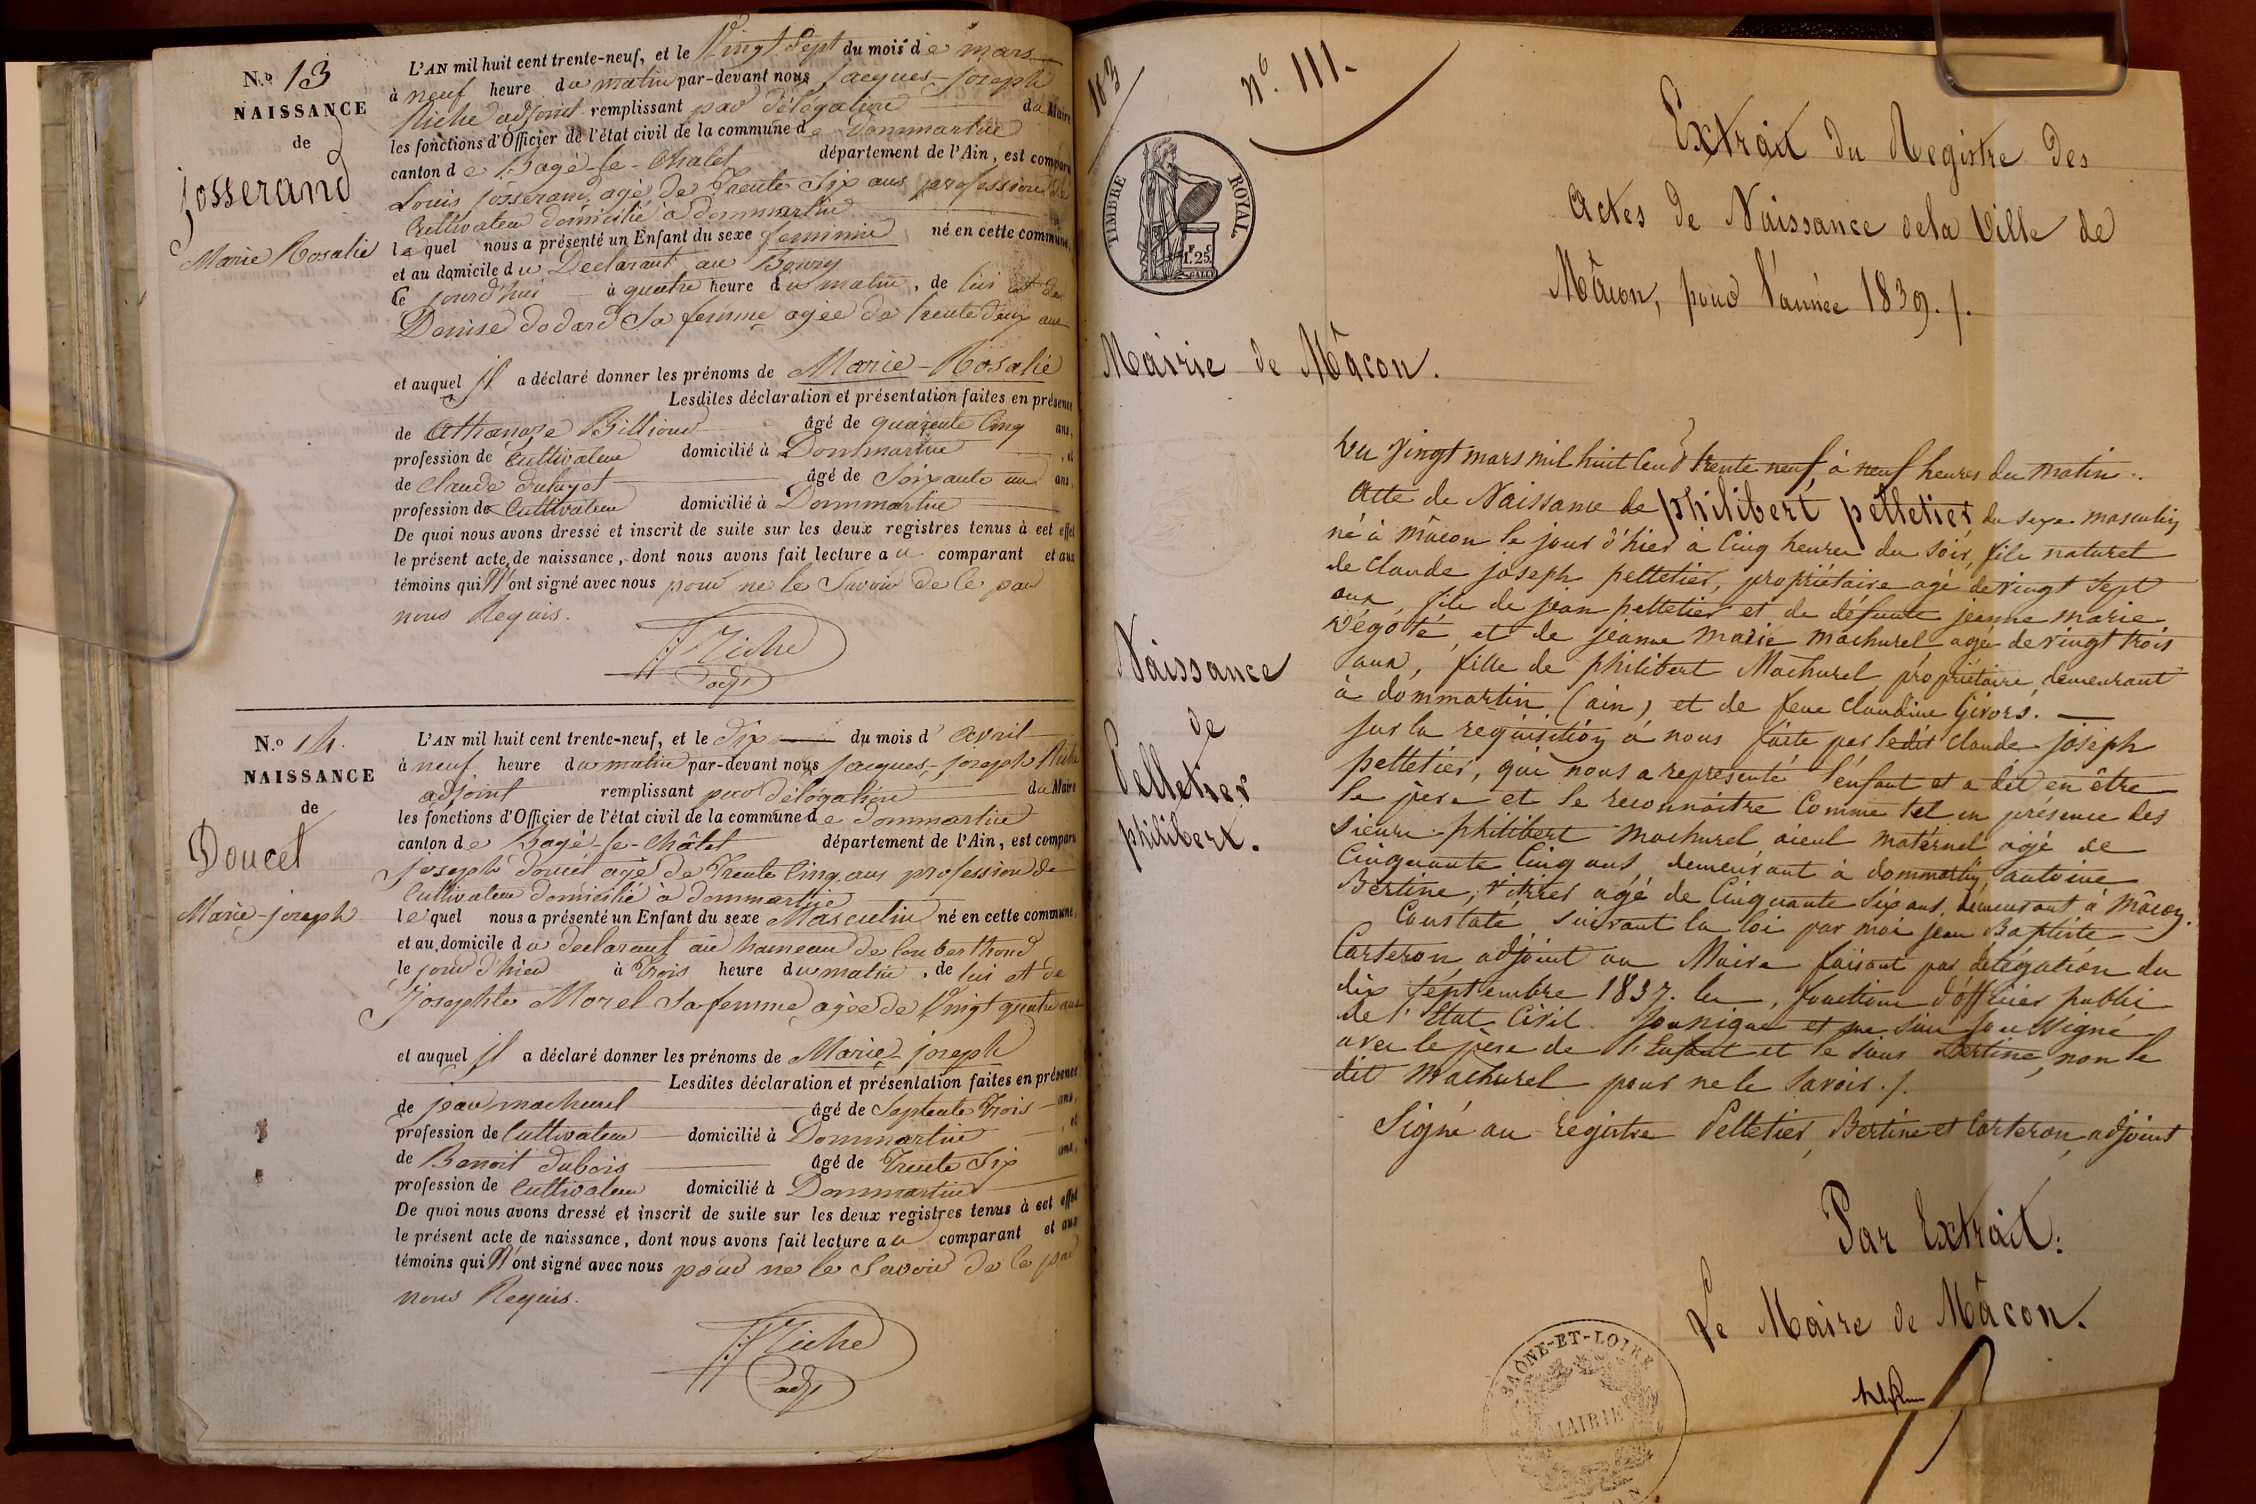 N.o 13
NAISSANCE
de
Josserand
Marie Rosalie
L'AN mil huit cent trente-neuf, et le Vingt Sept du mois de mars
à neuf heure du matin par-devant nous Jacques-Joseph
Riche adjoint remplissant par délégation du Maire
les fonctions d'Officier de l'état civil de la commune de Dommartin
canton de Bagé-le-Chatel département de l'Ain, est comparu
Louis Josserand agé de Trente Six ans profession de
Cultivateur domicilié à dommartin
lequel nous a présenté un Enfant du sexe feminin né en cette commune,
et au domicile du Declarant au Bourg
Ce jourd'hui à quatre heure du matin, de lui et de
Denise dodard Sa femme agée de trente deux ans
et auquel Il a déclaré donner les prénoms de Marie-Rosalie
Lesdites déclaration et présentation faites en présence
de Athanaze Billioud âgé de quarente Cinq ans,
profession de Cultivateur domicilié à Dommartin, et
de Claude duhuyot âgé de Soixante un ans,
profession de Cultivateur domicilié à Dommartin
De quoi nous avons dressé et inscrit de suite sur les deux registres tenus à cet effet
le présent acte de naissance, dont nous avons fait lecture au comparant et aux
témoins qui N'ont signé avec nous pour ne le Savoir de le par
nous Requis.
JJ Riche
adj
N.o 14.
NAISSANCE
de
Doucet
Marie-joseph
L'AN mil huit cent trente-neuf, et le dix du mois d'avril
à neuf heure du matin par-devant nous Jacques-Joseph Riche
adjoint remplissant par délégation du Maire
les fonctions d'Officier de l'état civil de la commune de Dommartin
canton de Bagé-le-Châtel département de l'Ain, est comparu
Joseph doucet agé de Trente Cinq ans profession de
Cultivateur domicilié à dommartin
lequel nous a présenté un Enfant du sexe Masculin né en cette commune,
et au domicile du declarant au hameau de
le jour d'hier à Trois heure du matin, de lui et de
Josephte Morel Sa femme agée de Vingt quatre ans
et auquel Il a déclaré donner les prénoms de Marie-joseph
Lesdites déclaration et présentation faites en présence
de jean machurel âgé de Septente Trois ans,
profession de Cultivateur domicilié à Dommartin, et
de Benoit dubois âgé de Trente Six ans,
profession de Cultivateur domicilié à Dommartin
De quoi nous avons dressé et inscrit de suite sur les deux registres tenus à cet effet
le présent acte de naissance, dont nous avons fait lecture au comparant et aux
témoins qui N'ont signé avec nous pour ne le Savoir de le par
nous Requis.
JJ Riche
adj
103
n° 111.
TIMBRE ROYAL
F. C
1. 25.
Extrait du Registre des
Actes de Naissance de la Ville de
Mâcon, pour l'année 1839./.
Mairie de Mâcon.
Naissance
de
Pelletier
philibert.
Du vingt mars mil huit Cent trente neuf, à neuf heures du matin.
Acte de Naissance de philibert pelletier du sexe masculin
né à mâcon le jour d'hier à Cinq heures du soir, fils naturel
de Claude joseph pelletier, propriétaire agé de vingt sept
ans, fils de jean pelletier et de défunte jeanne marie
Dégoté, et de jeanne marie machurel agée de vingt trois
ans, fille de philibert Machurel propriétaire, demeurant
à dommartin (ain) et de feue Claudine Givors.
Sur la requisition à nous faite par ledit Claude joseph
pelletier, qui nous a représenté l'enfant et a dit en être
le père et le reconnaitre Comme tel en présence des
sieurs philibert machurel aieul maternel agé de
Cinquante Cinq ans, demeurant à dommartin, antoine
Bertine, vitrier agé de Cinquante Six ans, demeurant à Mâcon.
Constaté suivant la loi par moi jean Baptiste
Carteron, adjoint au Maire faisant par délégation du
dix Septembre 1837. les fonctions d'officier public
de l'Etat Civil. Soussigné et me suis Soussigné
avec le père de l'Enfant et le sieur Bertine, non le
dit Machurel pour ne le savoir./.
Signé au registre Pelletier, Bertine et Carteron, adjoint
Par Extrait:
Le Maire de Mâcon.
SAÔNE-ET-LOIRE
MAIRIE